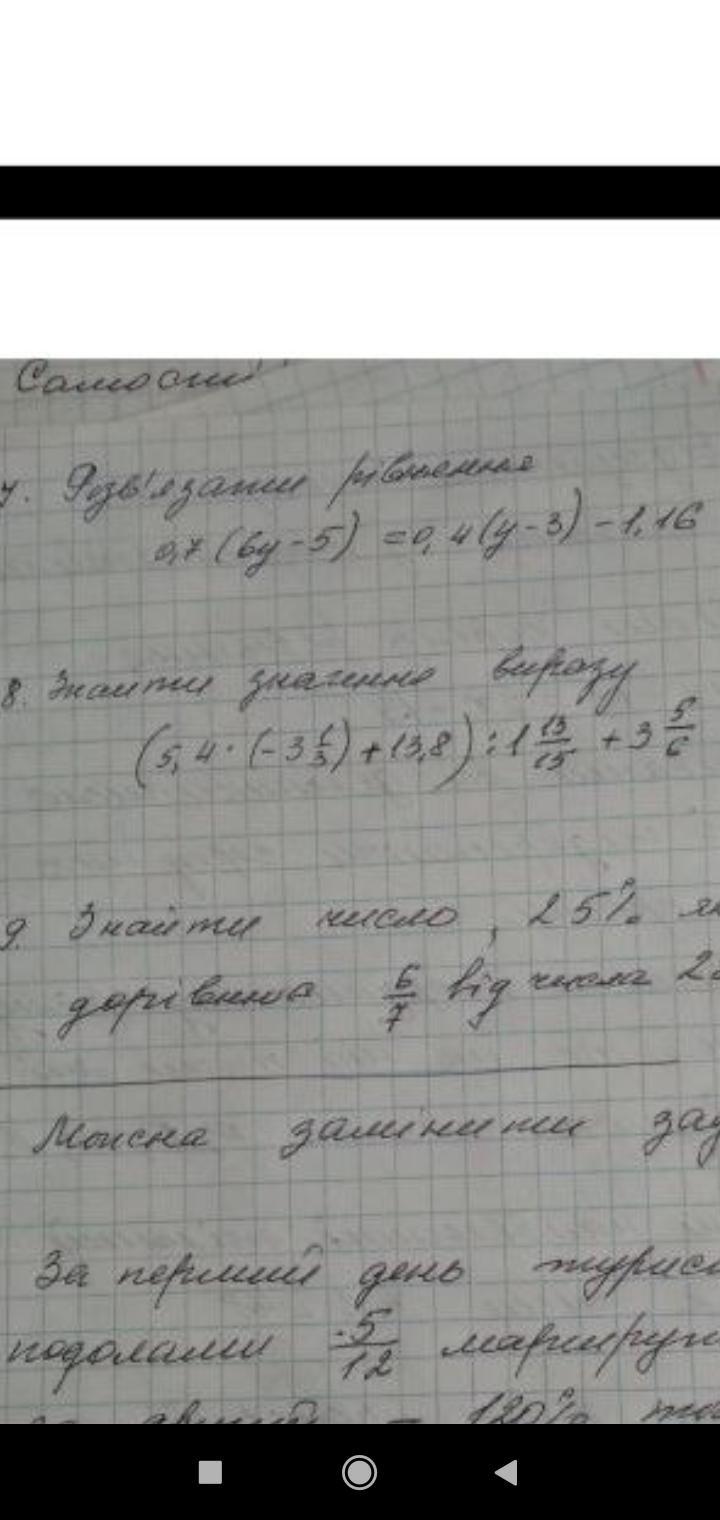 7. Розв'язати рівняння
0,7(6y-5) =0,4(y-3)-1,16
8. Знайти значення виразу
(5,4·(-3⅓)+13,8):1 13/15 +3 5/6
9. Знайти число, 25%
дорівнює 6/7 від числа
Можна замінити
За перший день
подолали 5/12
120%